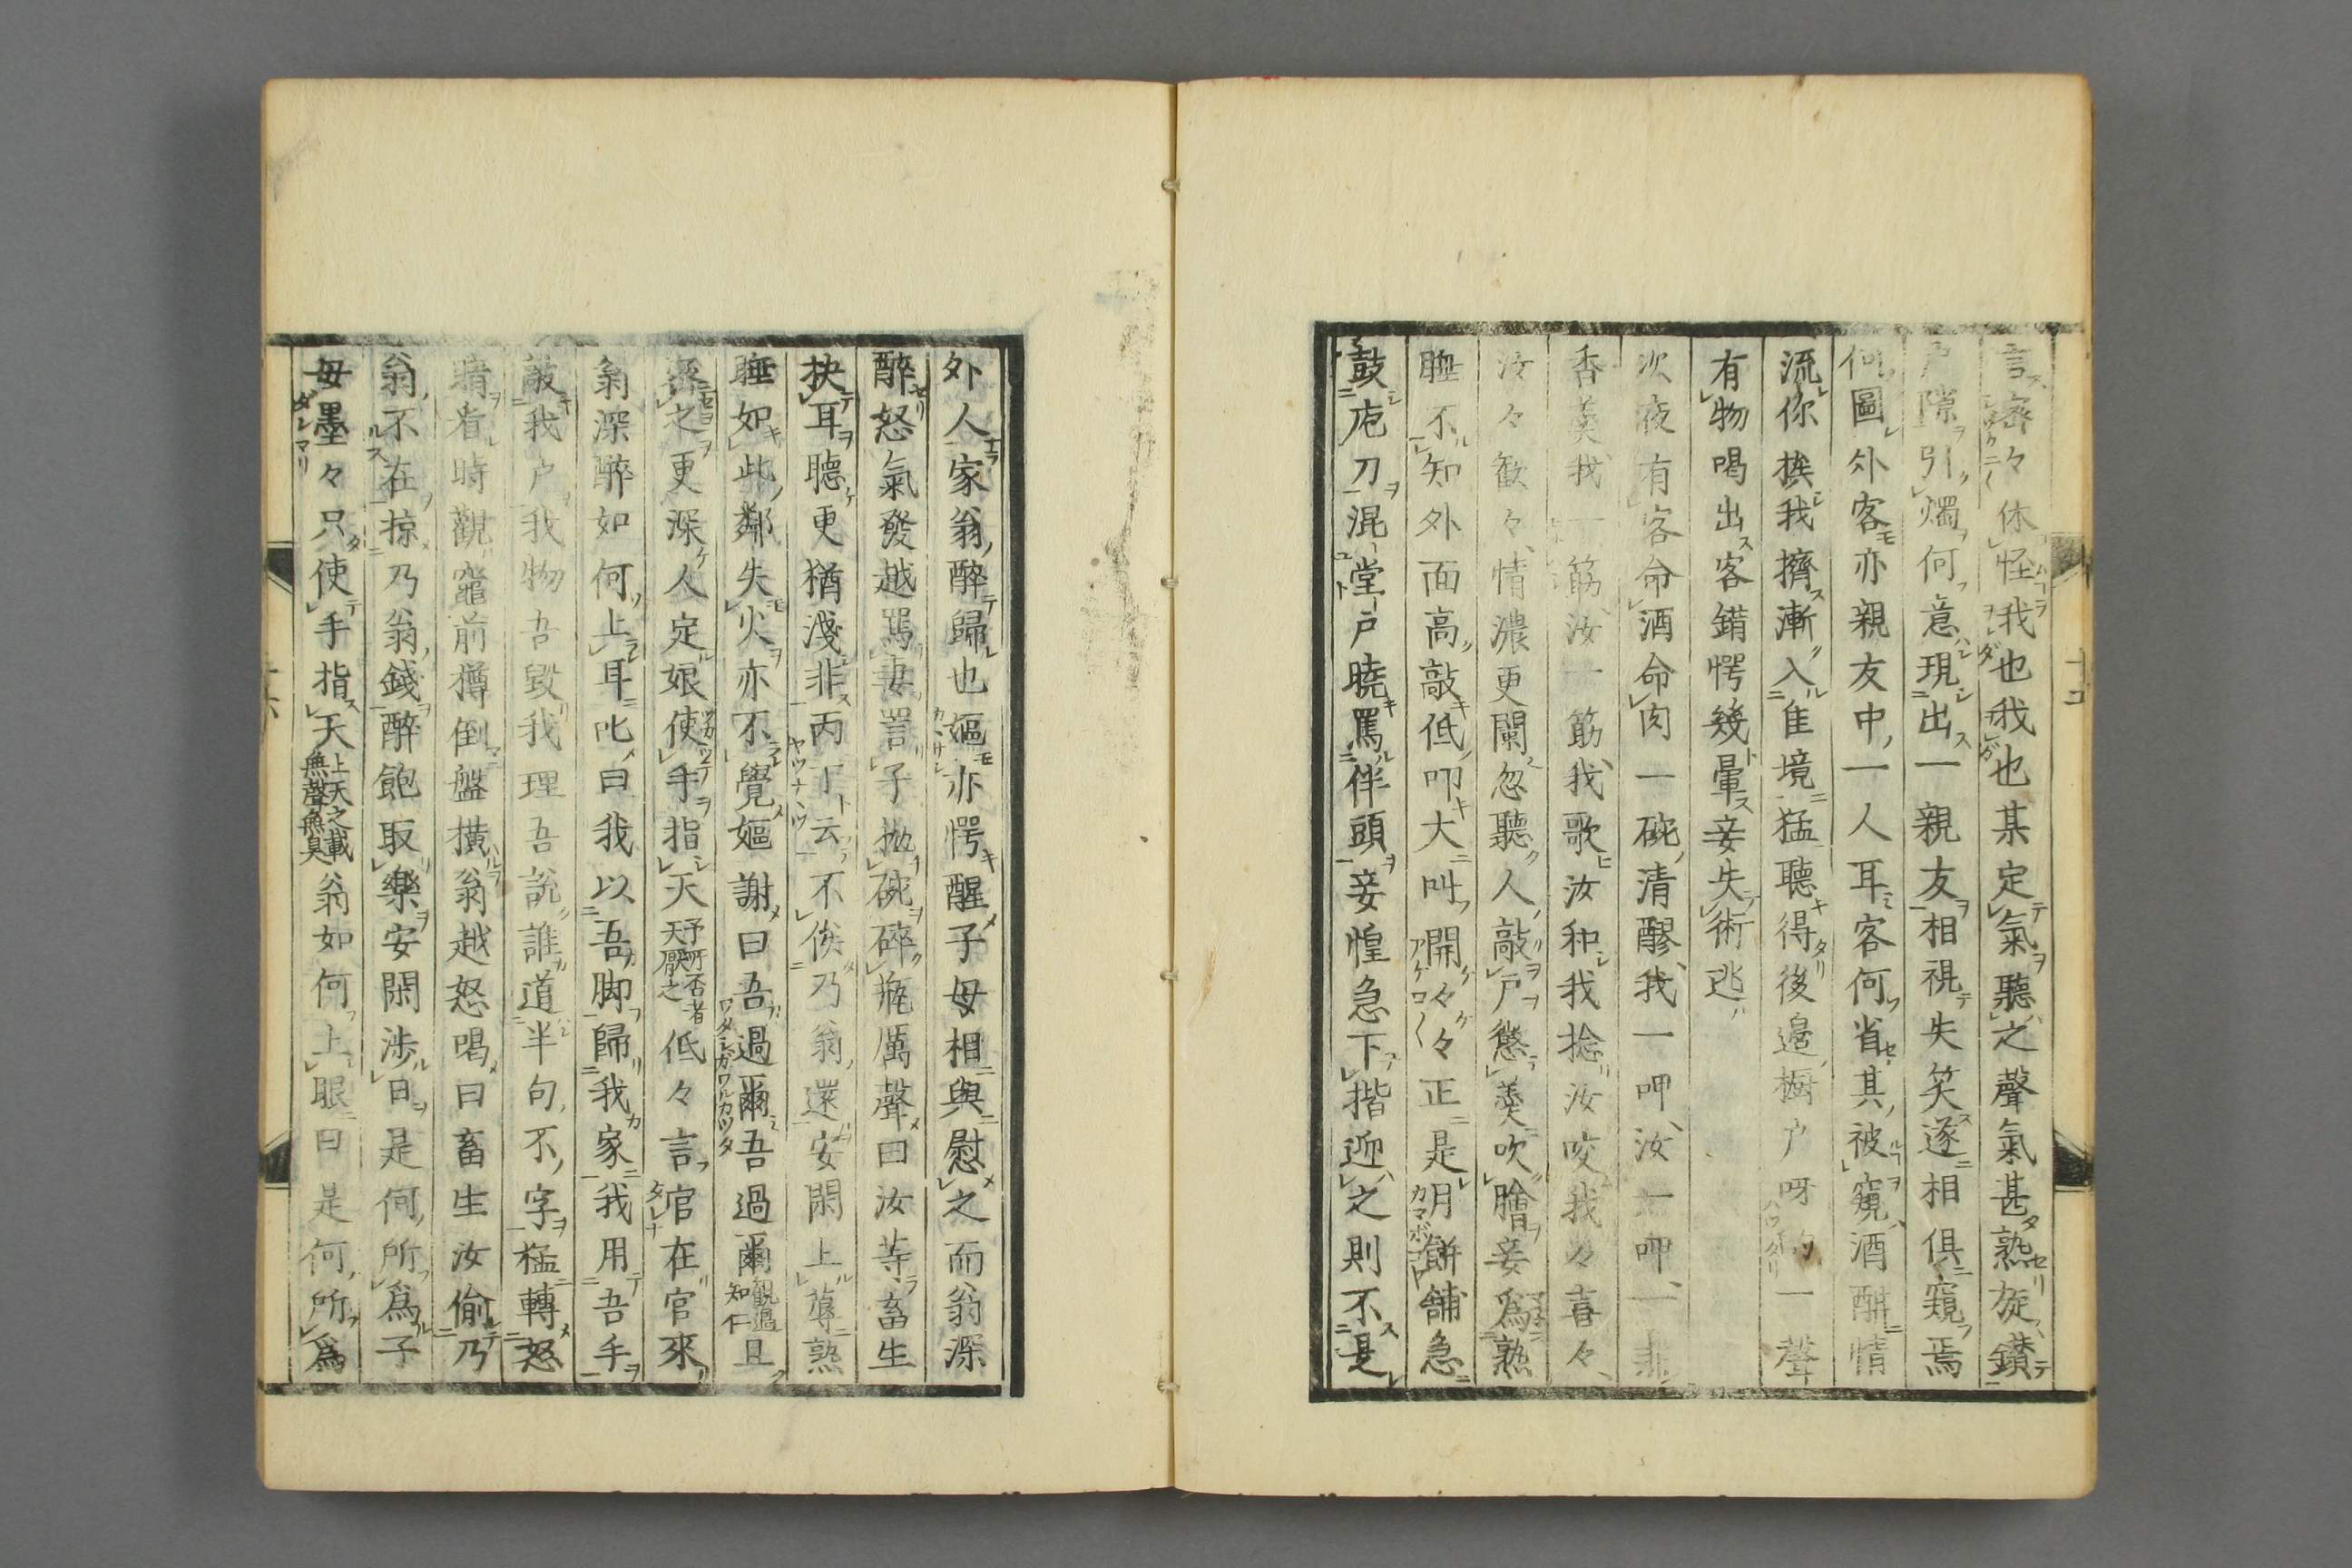 言濟々休怪我也我也某定氣聽之聲氣甚熟旋鑚
戸隙引燭何意現出一親友相視失笑遂相俱窺焉
何圖外客亦親友中一人耳客何省其被窺酒酣情
流你挨我擠漸入佳境猛聽得後邉橱戸呀的一聲
有物喝出客錯愕幾暈妾失術逃
次夜有客命酒命肉一碗清醪我一呷汝一呷一
香羹我一筯汝一筯我歌汝和我捻汝咬我々喜々
汝々歡々情濃更闌忽聽人敲戸懲羹吹膾妾爲熟
睡不知外面高敲低叩大叫開々々正是月餅舗急
鼓庖刀混堂戸曉罵伴頭妾惶急下揩迎之則不是
外人家翁醉歸也嫗亦愕醒子母相與慰之而翁深
醉怒氣發越罵妻詈子抛碗碎甁厲聲曰汝等畜生
抉耳聽更猶淺非丙丁云不俟乃翁還安閑上蓐熟
睡如此鄰失火亦不覺嫗謝曰吾過爾吾過爾觀過知仁且
密之更深人定娘使手指天予所否者天厭之低々言官在官來
翁深醉如何上耳叱曰我以吾脚歸我家我用吾手
敲我户我物吾毀我理吾說誰道半句不字猛轉怒
睛看時觀竈前樽倒盤横翁越怒喝曰畜生汝偷乃
翁不在掠乃翁錢醉飽取樂安閑渉日是何所爲子
母墨々只使手指天上天之載無聲無臭翁如何上眼曰是何所爲